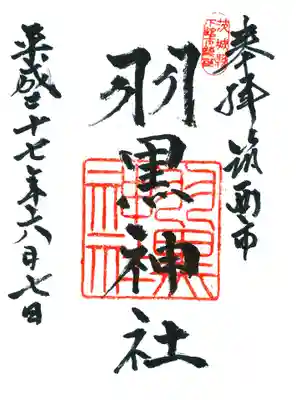 奉拝 筑西市
茨城県
羽黒神社
羽黒
神社
平成二十七年六月七日